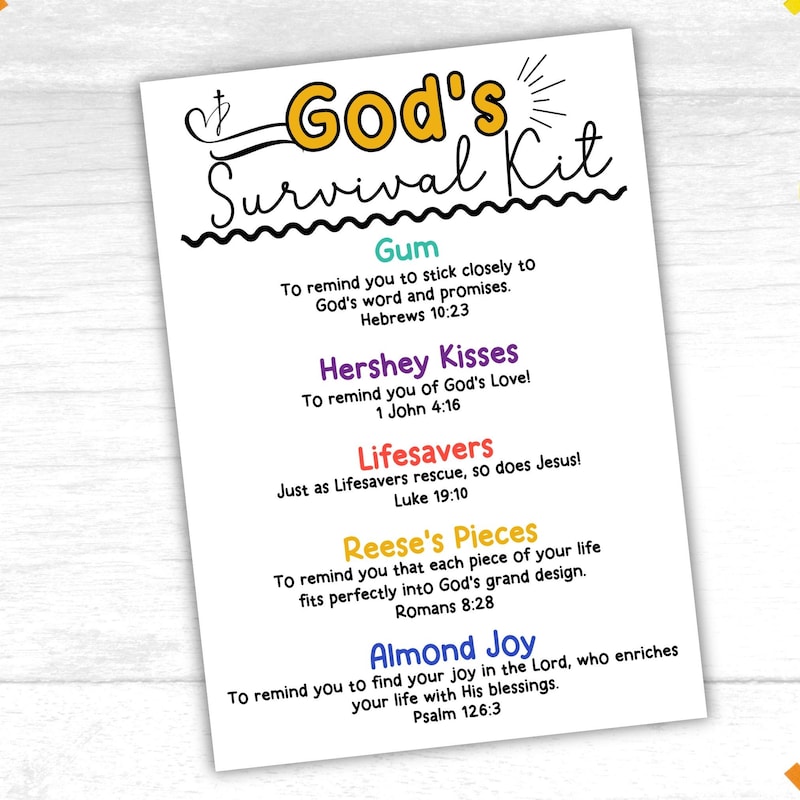 God's
Survival Kit
Gum
To remind you to stick closely to
God's word and promises.
Hebrews 10:23
Hershey Kisses
To remind you of God's Love!
1 John 4:16
Lifesavers
Just as Lifesavers rescue, so does Jesus!
Luke 19:10
Reese's Pieces
To remind you that each piece of your life
fits perfectly into God's grand design.
Romans 8:28
Almond Joy
To remind you to find your joy in the Lord, who enriches
your life with His blessings.
Psalm 126:3